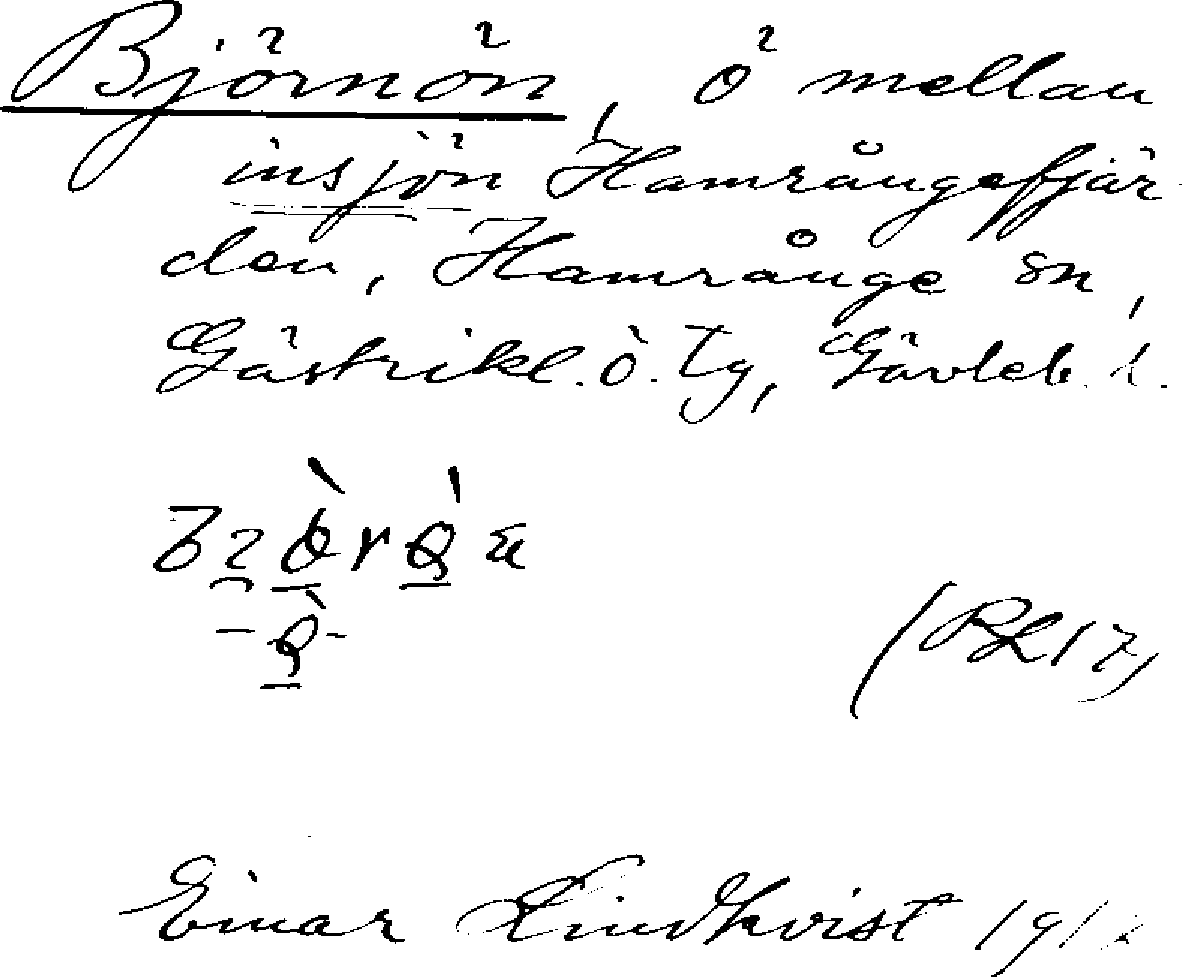 Björnön, ö mellan
insjön Hamrångefjär
den, Hamrånge sn,
Gästrikl. ö. tg, Gävleb. l.
(RL 17,
Einar Lindkvist